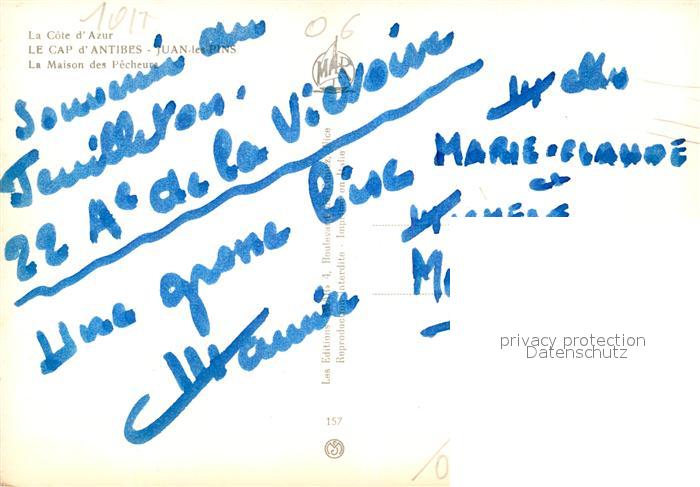 La Côte d'Azur
LE CAP d'ANTIBES - JUAN-les-PINS
La Maison des Pêcheurs
MAR
Souvenir du
Feuilleton.
22 Ae de la Victoire
Une grosse bise
Mlles
MARIE-CLAUDE
et
Les Editions 4, Boulevard Nice
Reproduction interdite - Imprimé en Italie
157
privacy protection
Datenschutz